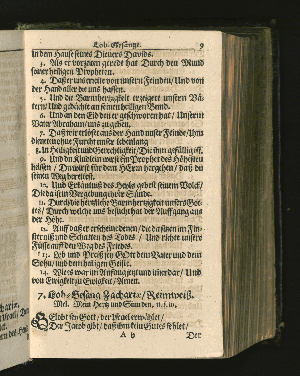 Lob-Gesänge. 9
In dem Hause seines Dieners Davids.
3. Als er vorzeiten geredt hat / Durch den Mund
seiner heiligen Propheten.
4. Daß er uns errette von unsern Feinden / Und von
der Hand aller die uns hassen.
5. Und die Barmhertzigkeit erzeiget unsern Vä-
tern / Und gedächte an seinen heiligen Bund.
6. Und an den Eid den er geschworen hat / Unserm
Vater Abraham / uns zu geben.
7. Daß wir erlöset aus der Hand unser Feinde / Ihm
dieneten ohne Furcht unser lebenlang
8. In Heiligkeit und Gerechtigkeit / Die ihm gefällig ist.
9. Und du Kindlein wirst ein Prophet des Höhesten
heissen / Du wirst für dem HErrn hergehen / daß du
seinen Weg bereitest.
10. Und Erkäntnüß des Heyls gebest seinem Volck /
Die da ist in Vergebung ihrer Sünde.
11. Durch die hertzliche Barmhertzigkeit unsers Got-
tes / Durch welche uns besucht hat der Auffgang aus
der Höhe.
12. Auff daß er erscheine denen / die da sitzen im Fin-
sternüß und Schatten des Todes / Und richte unsere
Füsse auff den Weg des Friedes.
13. Lob und Preiß sey GOtt dem Vater und dem
Sohn / und dem heiligen Geiste.
14. Wie es war im Anfang jetzt und immerdar / Und
von Ewigkeit zu Ewigkeit / Amen.
7. Lob-Gesang Zachariæ / Reimweiß.
Mel. Mein Hertz und Sinn
Gelobt sey Gott / der Israel erwählet /
Der Jacob gibt / daß ihm kein Gutes fehlet /
A 5 Der